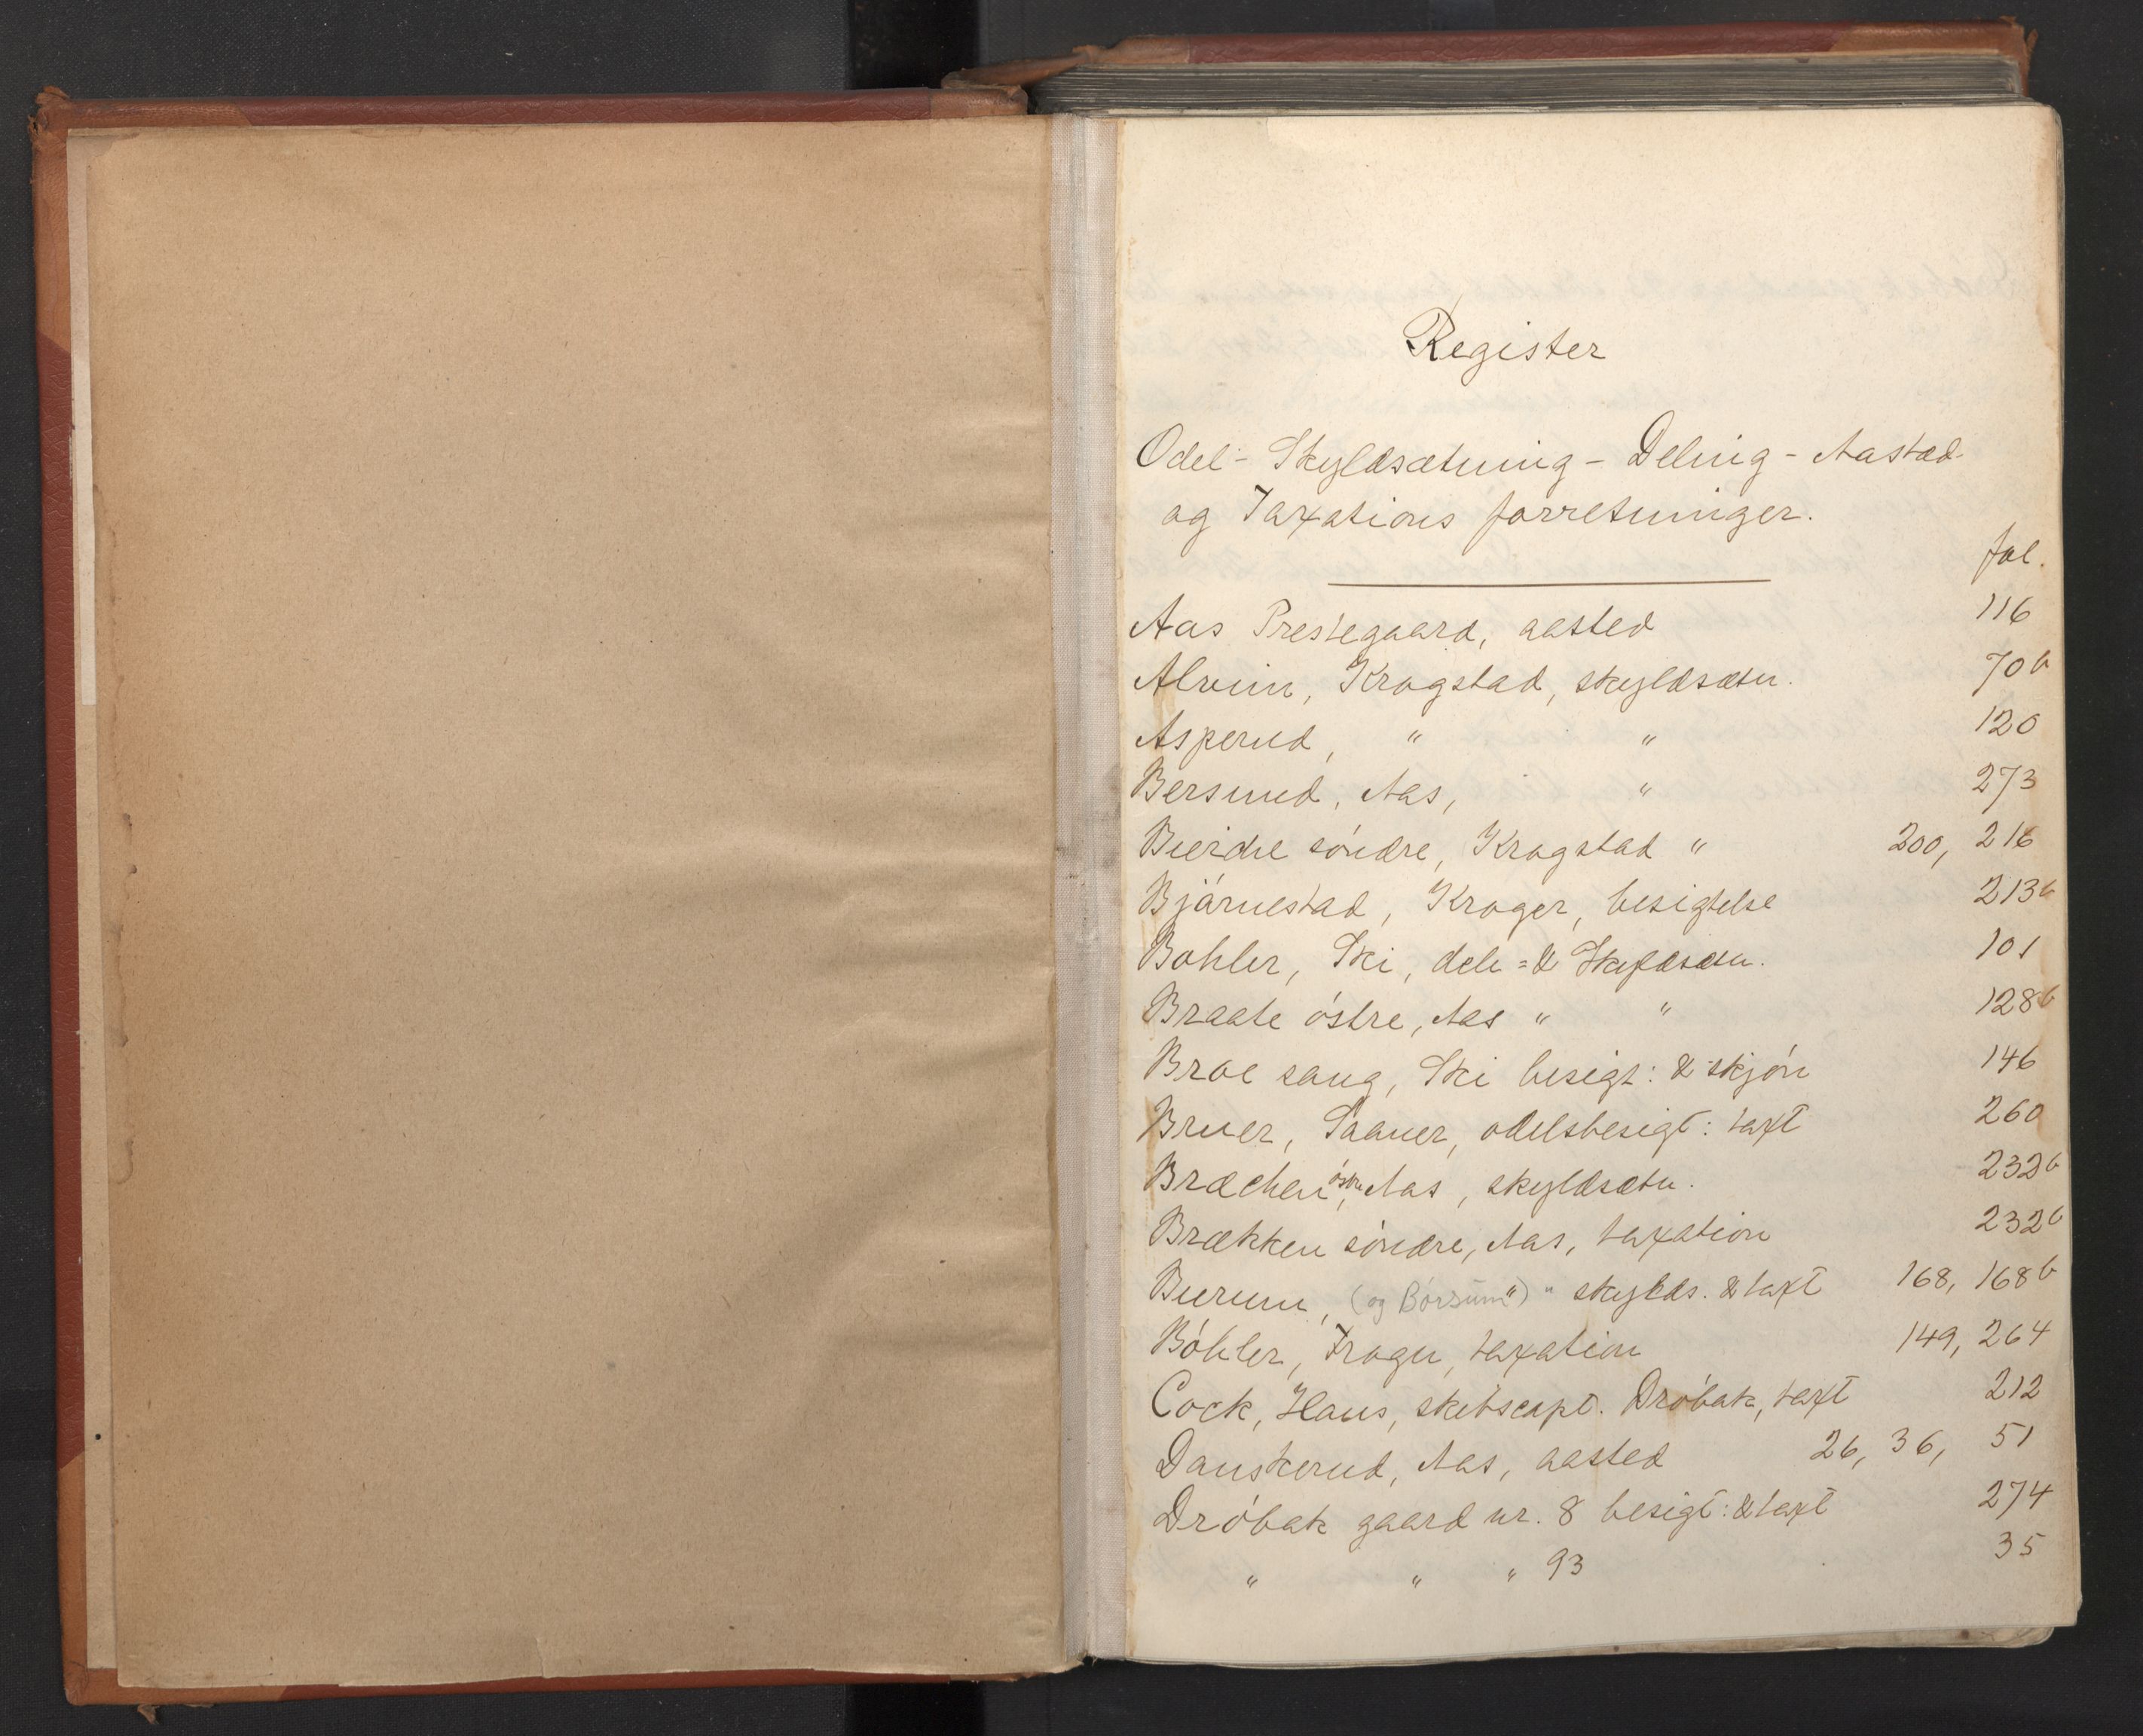 Register
Odel- Skyldsætning - Deling - Aasted-
og Taxations forretninger.
fol.
Aas Prestegaard, aasted 116
Alvim, Krogstad, skyldsætn. 70b
Asperud, " " 120
Bersrud, Aas, " 273
søndre, Krogstad " 200, 216
Bjårnestad, Kroger, besigtelse 213b
Bohler, Ski, dele=& Skyldsætn. 101
Braate østre, Aas " " 128b
Broe saug, Ski besigt: & skjøn 146
Bruer, Saaner, odelsbesigt: taxt 260
Bræchen østre, Aas, skyldsætn. 232b
Brækken søndre, Aas, taxation 232b
Burum, (og Börsum") " skylds. & taxt 168, 168b
Bøhler, Frogn, taxation 149, 264
Cock, Hans, skibscapt. Drøbak, taxt 212
Danskerud, Aas, aasted 26, 36, 51
Drøbak gaard nr. 8 besigt: & taxt 274
" " " 93 35